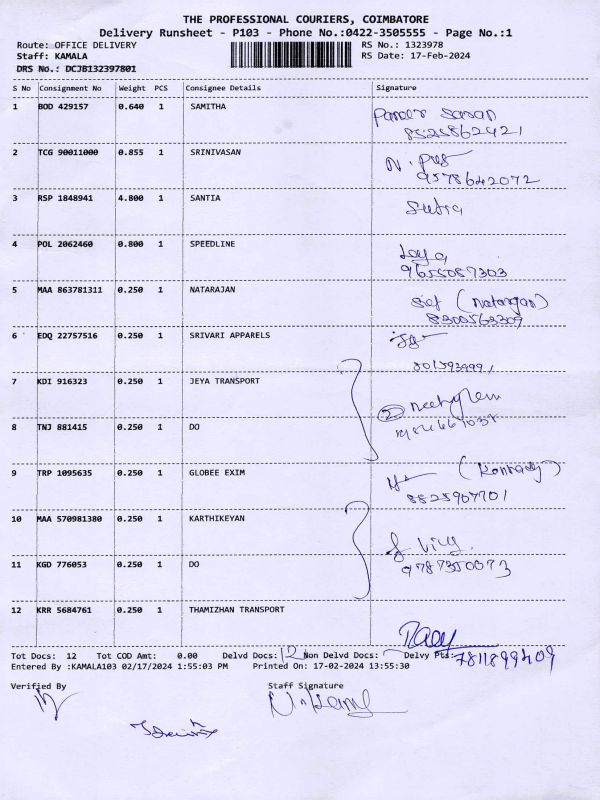 THE PROFESSIONAL COURIERS, COIMBATORE
Delivery Runsheet - P103 - Phone No.:0422-3505555 - Page No.:1
Route: OFFICE DELIVERY RS No.: 1323978
Staff: KAMALA RS Date: 17-Feb-2024
DRS No.: DCJB132397801
S No Consignment No Weight PCS Consignee Details Signature
1 BOD 429157 0.640 1 SAMITHA
8525862421
2 TCG 90011000 0.855 1 SRINIVASAN
9578642072
3 RSP 1848941 4.800 1 SANTIA
4 POL 2062460 0.800 1 SPEEDLINE
9655087303
5 MAA 863781311 0.250 1 NATARAJAN
8300563309
6 EDQ 22757516 0.250 1 SRIVARI APPARELS
7 KDI 916323 0.250 1 JEYA TRANSPORT
8 TNJ 881415 0.250 1 DO
9 TRP 1095635 0.250 1 GLOBEE EXIM
8825907701
10 MAA 570981380 0.250 1 KARTHIKEYAN
11 KGD 776053 0.250 1 DO
9787350073
12 KRR 5684761 0.250 1 THAMIZHAN TRANSPORT
Tot Docs: 12 Tot COD Amt: 0.00 Delvd Docs: 12 Non Delvd Docs: Delvy Pts:
7811899409
Entered By :KAMALA103 02/17/2024 1:55:03 PM Printed On: 17-02-2024 13:55:30
Verified By Staff Signature